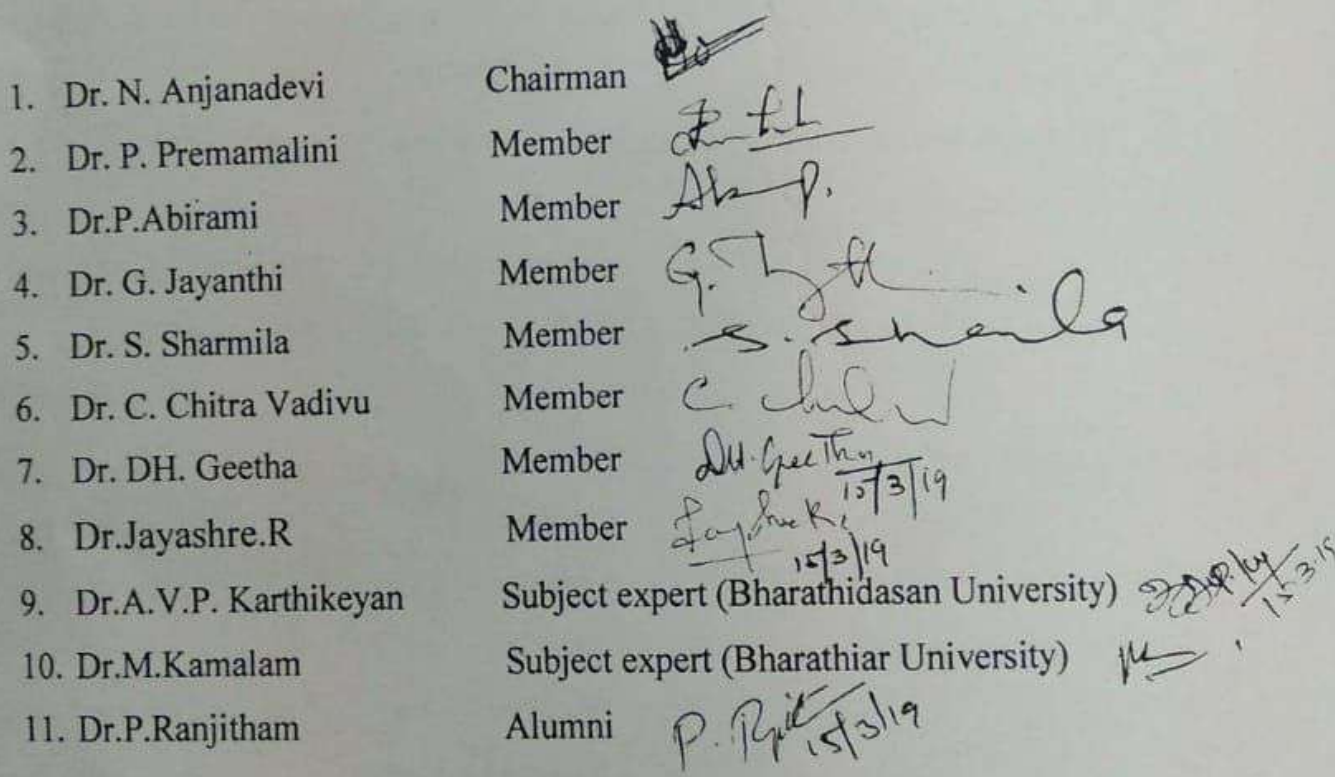 1. Dr. N. Anjanadevi Chairman
2. Dr. P. Premamalini Member
3. Dr.P.Abirami Member
4. Dr. G. Jayanthi Member G.
5. Dr. S. Sharmila Member S. Sharmila
6. Dr. C. Chitra Vadivu Member C.
7. Dr. DH. Geetha Member DH. Geetha
15/3/19
8. Dr.Jayashre.R Member
15/3/19
9. Dr.A.V.P. Karthikeyan Subject expert (Bharathidasan University) 15.3.19
10. Dr.M.Kamalam Subject expert (Bharathiar University)
11. Dr.P.Ranjitham Alumni P. 15/3/19